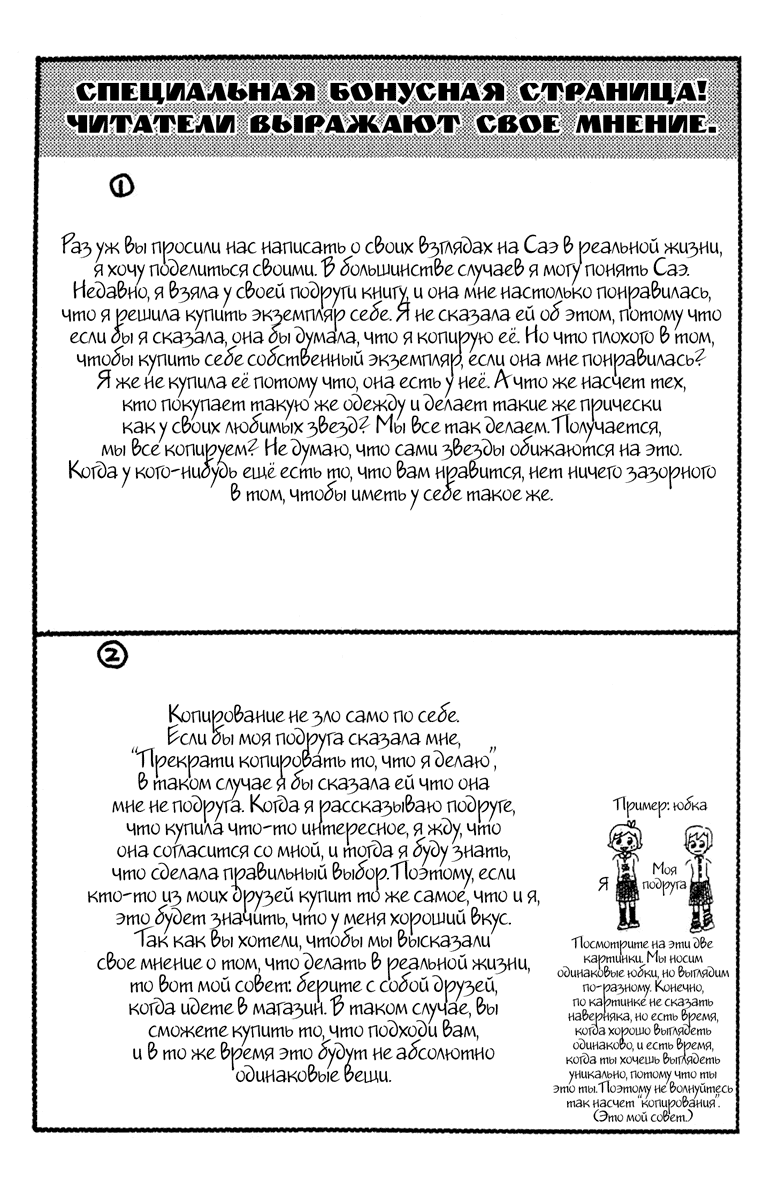 СПЕЦИАЛЬНАЯ БОНУСНАЯ СТРАНИЦА!
ЧИТАТЕЛИ ВЫРАЖАЮТ СВОЕ МНЕНИЕ.
1
Раз уж вы просили нас написать о своих взглядах на Саэ в реальной жизни,
я хочу поделиться своими. В большинстве случаев я могу понять Саэ.
Недавно, я взяла у своей подруги книгу, и она мне настолько понравилась,
что я решила купить экземпляр себе. Я не сказала ей об этом, потому что
если бы я сказала, она бы думала, что я копирую её. Но что плохого в том,
чтобы купить себе собственный экземпляр, если она мне понравилась?
Я же не купила её потому что, она есть у неё. А что же насчет тех,
кто покупает такую же одежду и делает такие же прически
как у своих любимых звезд? Мы все так делаем. Получается,
мы все копируем? Не думаю, что сами звезды обижаются на это.
Когда у кого-нибудь ещё есть то, что вам нравится, нет ничего зазорного
в том, чтобы иметь у себе такое же.
2
Копирование не зло само по себе.
Если бы моя подруга сказала мне,
"Прекрати копировать то, что я делаю",
в таком случае я бы сказала ей что она
мне не подруга. Когда я рассказываю подруге,
что купила что-то интересное, я жду, что
она согласится со мной, и тогда я буду знать,
что сделала правильный выбор. Поэтому, если
кто-то из моих друзей купит то же самое, что и я,
это будет значить, что у меня хороший вкус.
Так как вы хотели, чтобы мы высказали
свое мнение о том, что делать в реальной жизни,
то вот мой совет: берите с собой друзей,
когда идете в магазин. В таком случае, вы
сможете купить то, что подходи вам,
и в то же время это будут не абсолютно
одинаковые вещи.
Пример: юбка
Я
Моя
подруга
Посмотрите на эти две
картинки. Мы носим
одинаковые юбки, но выглядим
по-разному. Конечно,
по картинке не сказать
наверняка, но есть время,
когда хорошо выглядеть
одинаково, и есть время,
когда ты хочешь выглядеть
уникально, потому что ты
это ты. Поэтому не волнуйтесь
так насчет "копирования".
(Это мой совет.)